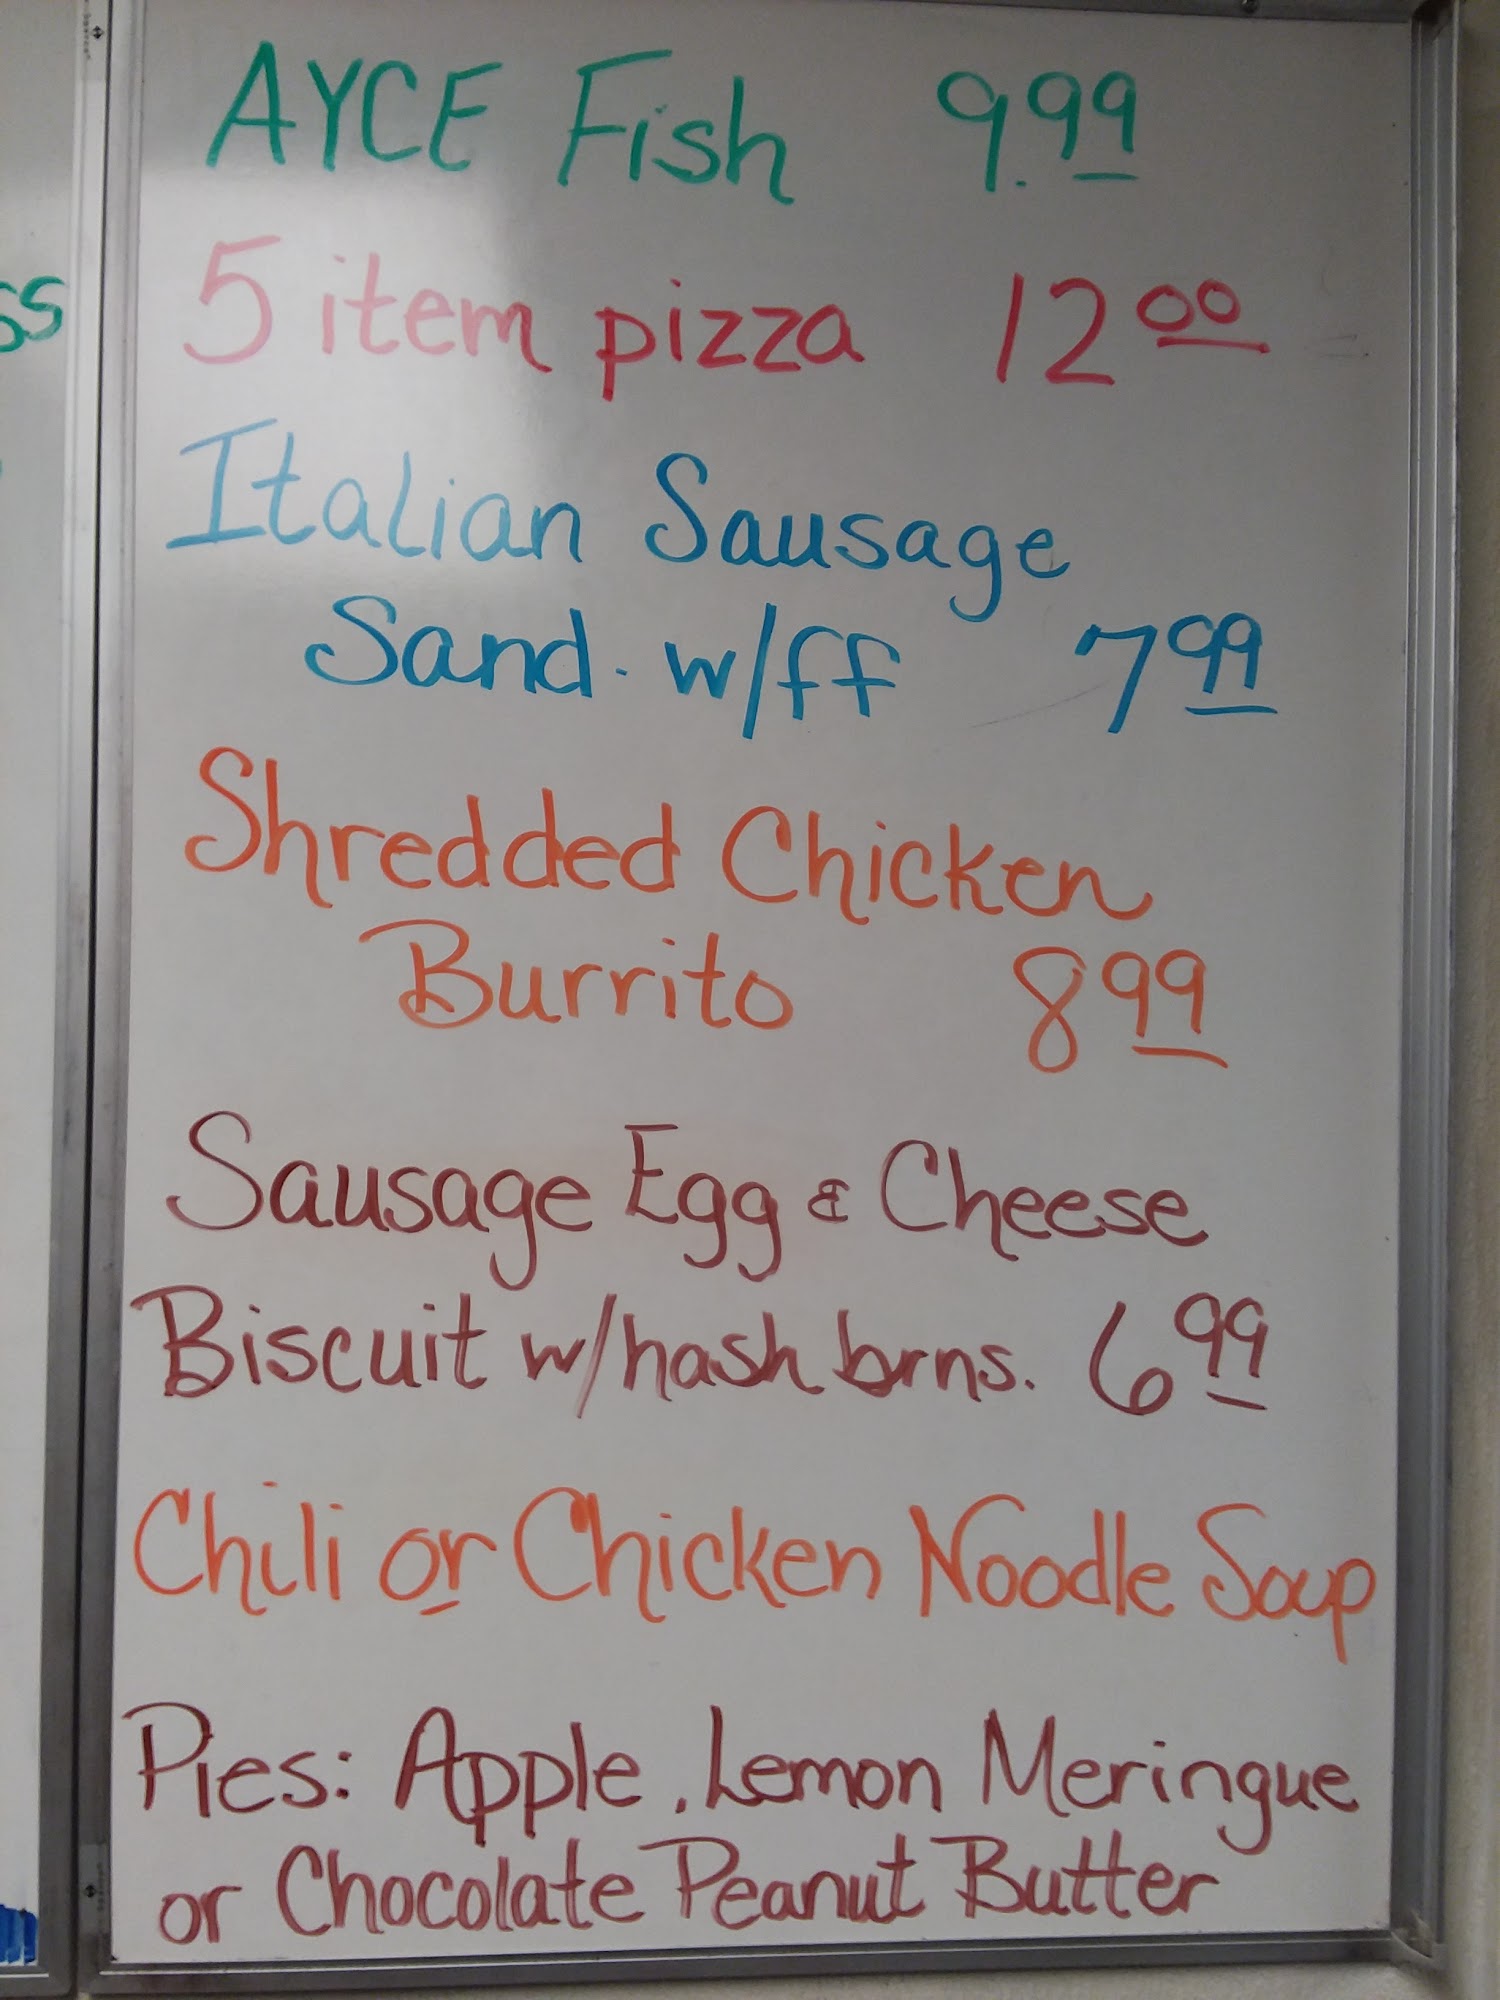 AYCE Fish 9.99
5 item pizza 12 00
Italian Sausage
Sand. w/ff 7 99
Shredded Chicken
Burrito 8 99
Sausage Egg & Cheese
Biscuit w/hash brns. 6 99
Chili or Chicken Noodle Soup
Pies: Apple, Lemon Meringue
or Chocolate Peanut Butter